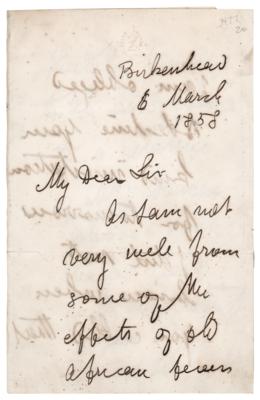 Birkenhead
6 March
1858
My Dear Sir
As I am not
very well from
some of the
effects of old
African fevers